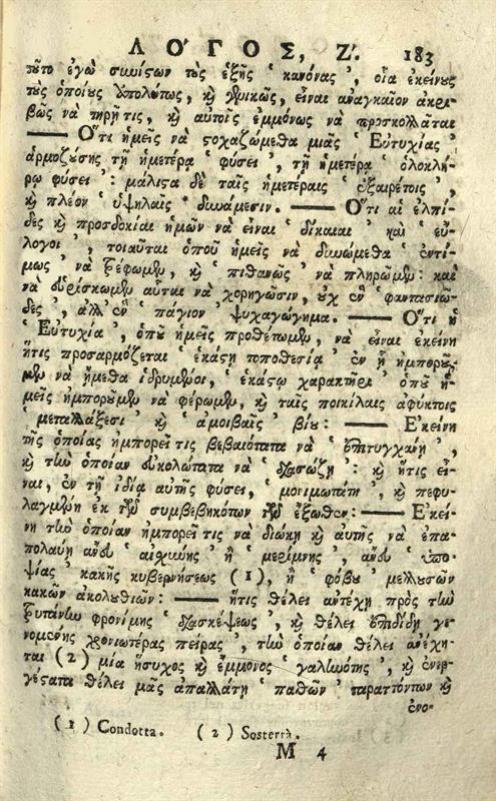 ΛΟ´ΓΟΣ, Ζ´. 183
τοῦτο ἐγὼ συνιςῶν τοὺς ἑξῆς ʿ κανόνας ʾ, οἷα ἐκείνους
τοὺς ὁποίους ὑπολύτως, καὶ γενικῶς, εἶναι ἀναγκαῖον ἀκρι-
βῶς νὰ τηρῇ τις, καὶ αὐτοῖς ἐμμόνως νὰ προσκολλᾶται
—— Ὅτι ἡμεῖς νὰ ςοχαζώμεθα μιᾶς ʿ Εὐτυχίας ʾ
ἁρμοζούσης τῇ ἡμετέρᾳ ʿ φύσει ʾ, τῇ ἡμετέρᾳ ʿ ὁλοκλή-
ρῳ φύσει ʾ: μάλιςα δὲ ταῖς ἡμετέραις ʿ ἐξαιρέτοις ʾ,
καὶ πλέον ʿ ὑψηλαῖς ʾ δυνάμεσιν. —— Ὅτι αἱ ἐλπί-
δες καὶ προσδοκίαι ἡμῶν νὰ εἶναι ʿ δίκαιαι ʾ καὶ ʿ εὔ-
λογοι ʾ, τοιαῦται ὁποῦ ἡμεῖς νὰ δυνώμεθα ʿ ἐντί-
μως ʾ νὰ τρέφωμεν, καὶ ʿ πιθανῶς ʾ νὰ πληρῶμεν: καὶ
νὰ εὑρίσκωμεν αὗται νὰ χορηγῶσιν, οὐχ ἓν ʿ φαντασιῶ-
δες ʾ, ἀλλ' ἓν ʿ πάγιον ʾ ψυχαγώγημα. —— Ὅτι ἡ
ʿ Εὐτυχία ʾ, ὁποῦ ἡμεῖς προθέτωμεν, νὰ εἶναι ἐκείνη
ἥτις προσαρμόζεται ʿ ἑκάςῃ τοποθεσίᾳ ʾ ἐν ᾗ ἠμποροῦ-
μεν νὰ ἤμεθα ἱδρυμένοι, ʿ ἑκάςῳ χαρακτῆρι ʾ ὁποῦ ἡ-
μεῖς ἠμποροῦμεν νὰ φέρωμεν, καὶ ταῖς ποικίλαις ἀφύκτοις
ʿ μεταλλάξεσι ʾ καὶ ʿ ἀμοιβαῖς ʾ βίου: —— Ἐκείνη
τῆς ὁποίας ἠμπορεῖ τις βεβαιότατα νὰ ʿ ἐπιτυγχάνῃ ʾ,
καὶ τὴν ὁποίαν εὐκολώτατα νὰ ʿ διασώζῃ ʾ: καὶ ἥτις εἶ-
ναι, ἐν τῇ ἰδίᾳ αὐτῆς φύσει, ʿ μονιμωτάτη ʾ, καὶ πεφυ-
λαγμένη ἐκ τῶν συμβεβηκότων τῶν ἔξωθεν: —— Ἐκεί-
νη τὴν ὁποίαν ἠμπορεῖ τις νὰ διώκῃ καὶ αὐτῆς νὰ ἐπα-
πολαύῃ ἄνευ ʿ αἰχύνης ʾ ἢ ʿ μερίμνης ʾ, ἄνευ ʿ ὑπο-
ψίας ʾ κακῆς κυβερνήσεως (1), ἢ ʿ φόβου ʾ μελλουσῶν
κακῶν ἀκολουθιῶν: —— ἥτις θέλει ἀντέχῃ πρὸς τὴν
ἐρυτάνην φρονίμης ʿ διασκέψεως ʾ, καὶ θέλει ἐπιδίδῃ γε-
νομένης χρονιωτέρας πείρας ʾ, τὴν ὁποίαν θέλει ἀνέχη-
ται (2) μία ἥσυχος καὶ ἔμμονος ʿ γαληνότης ʾ, καὶ ἐνερ-
γέςατα θέλει μᾶς ἀπαλλάττῃ ʿ παθῶν ʾ ταραττόντων καὶ
ἐνο-
(1) Condotta. (2) Sosterrà.
M 4